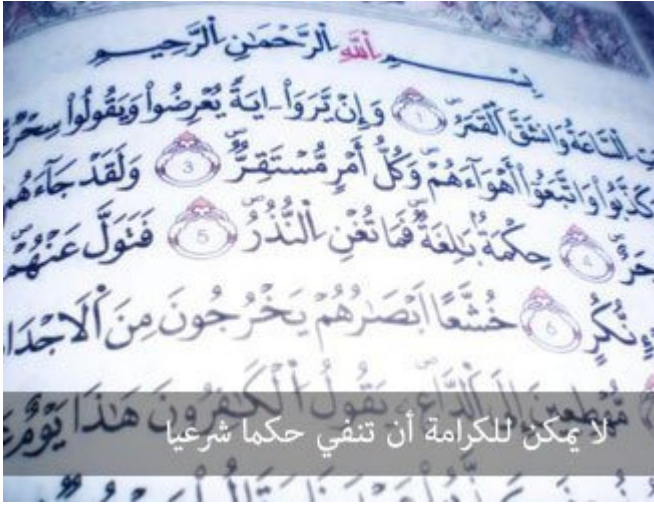 بِسْمِ اِللَّهِ اِلرَّحْمَٰنِ اِلرَّحِيمِ
اِلسَّاعَةُ وَانشَقَّ اَلْقَمَرُ 1 وَإِنْ يَّرَوَاْ ـايَةً يُعْرِضُواْ وَيَقُولُواْ سِحْرٌ
وَكَذَّبُواْ وَاتَّبَعُوٓاْ أَهْوَآءَهُمْ وَكُلُّ أَمْرٍ مُّسْتَقِرٌّ 3 وَلَقَدْ جَآءَهُم
4 حِكْمَةٌ بَٰلِغَةٌ فَمَا تُغْنِ اِلنُّذُرُ 5 فَتَوَلَّ عَنْهُمْ
نُّكُرٍ 6 خُشَّعاً اَبْصَٰرُهُمْ يَخْرُجُونَ مِنَ اَلَاجْدَا
مُّهْطِعِينَ إِلَى اَلدَّاعِ يَقُولُ اُلْكَٰفِرُونَ هَٰذَا يَوْمٌ
لا يمكن للكرامة أن تنفي حكما شرعيا